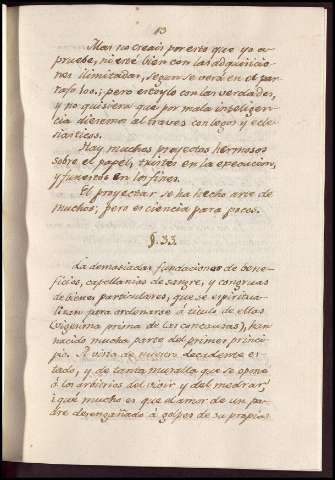 13
Mas no creais por esto que yo a-
pruebe, no esté bien con las adquisicio
nes ilimitadas, segun se verá en el par-
rafo 101.; pero estoylo con las verdades,
y no quisiera que por mala inteligen-
cia dieremos al traves con legos y ecle-
siasticos.
Hay muchos proyectos hermosos
sobre el papel, tristes en la execucion,
y funestos en los fines.
El proyectar se ha hecho arte de
muchos; pero es ciencia para pocos.
§. 33.
La demasiadas fundaciones de bene-
ficios, capellanias de sangre, y congruas
de bienes particulares, que se espiritua-
lizan para ordenarse á titulo de ellas
(vigesima prima de las concausas), han
nacido mucha parte del primer princi-
pio. A vista de nuestro decadente es-
tado, y de tanta muralla que se opone
á los arbitrios del vivir y del medrar,
¿qué mucho es que el amor de un pa-
dre desengañado á golpes de su propia